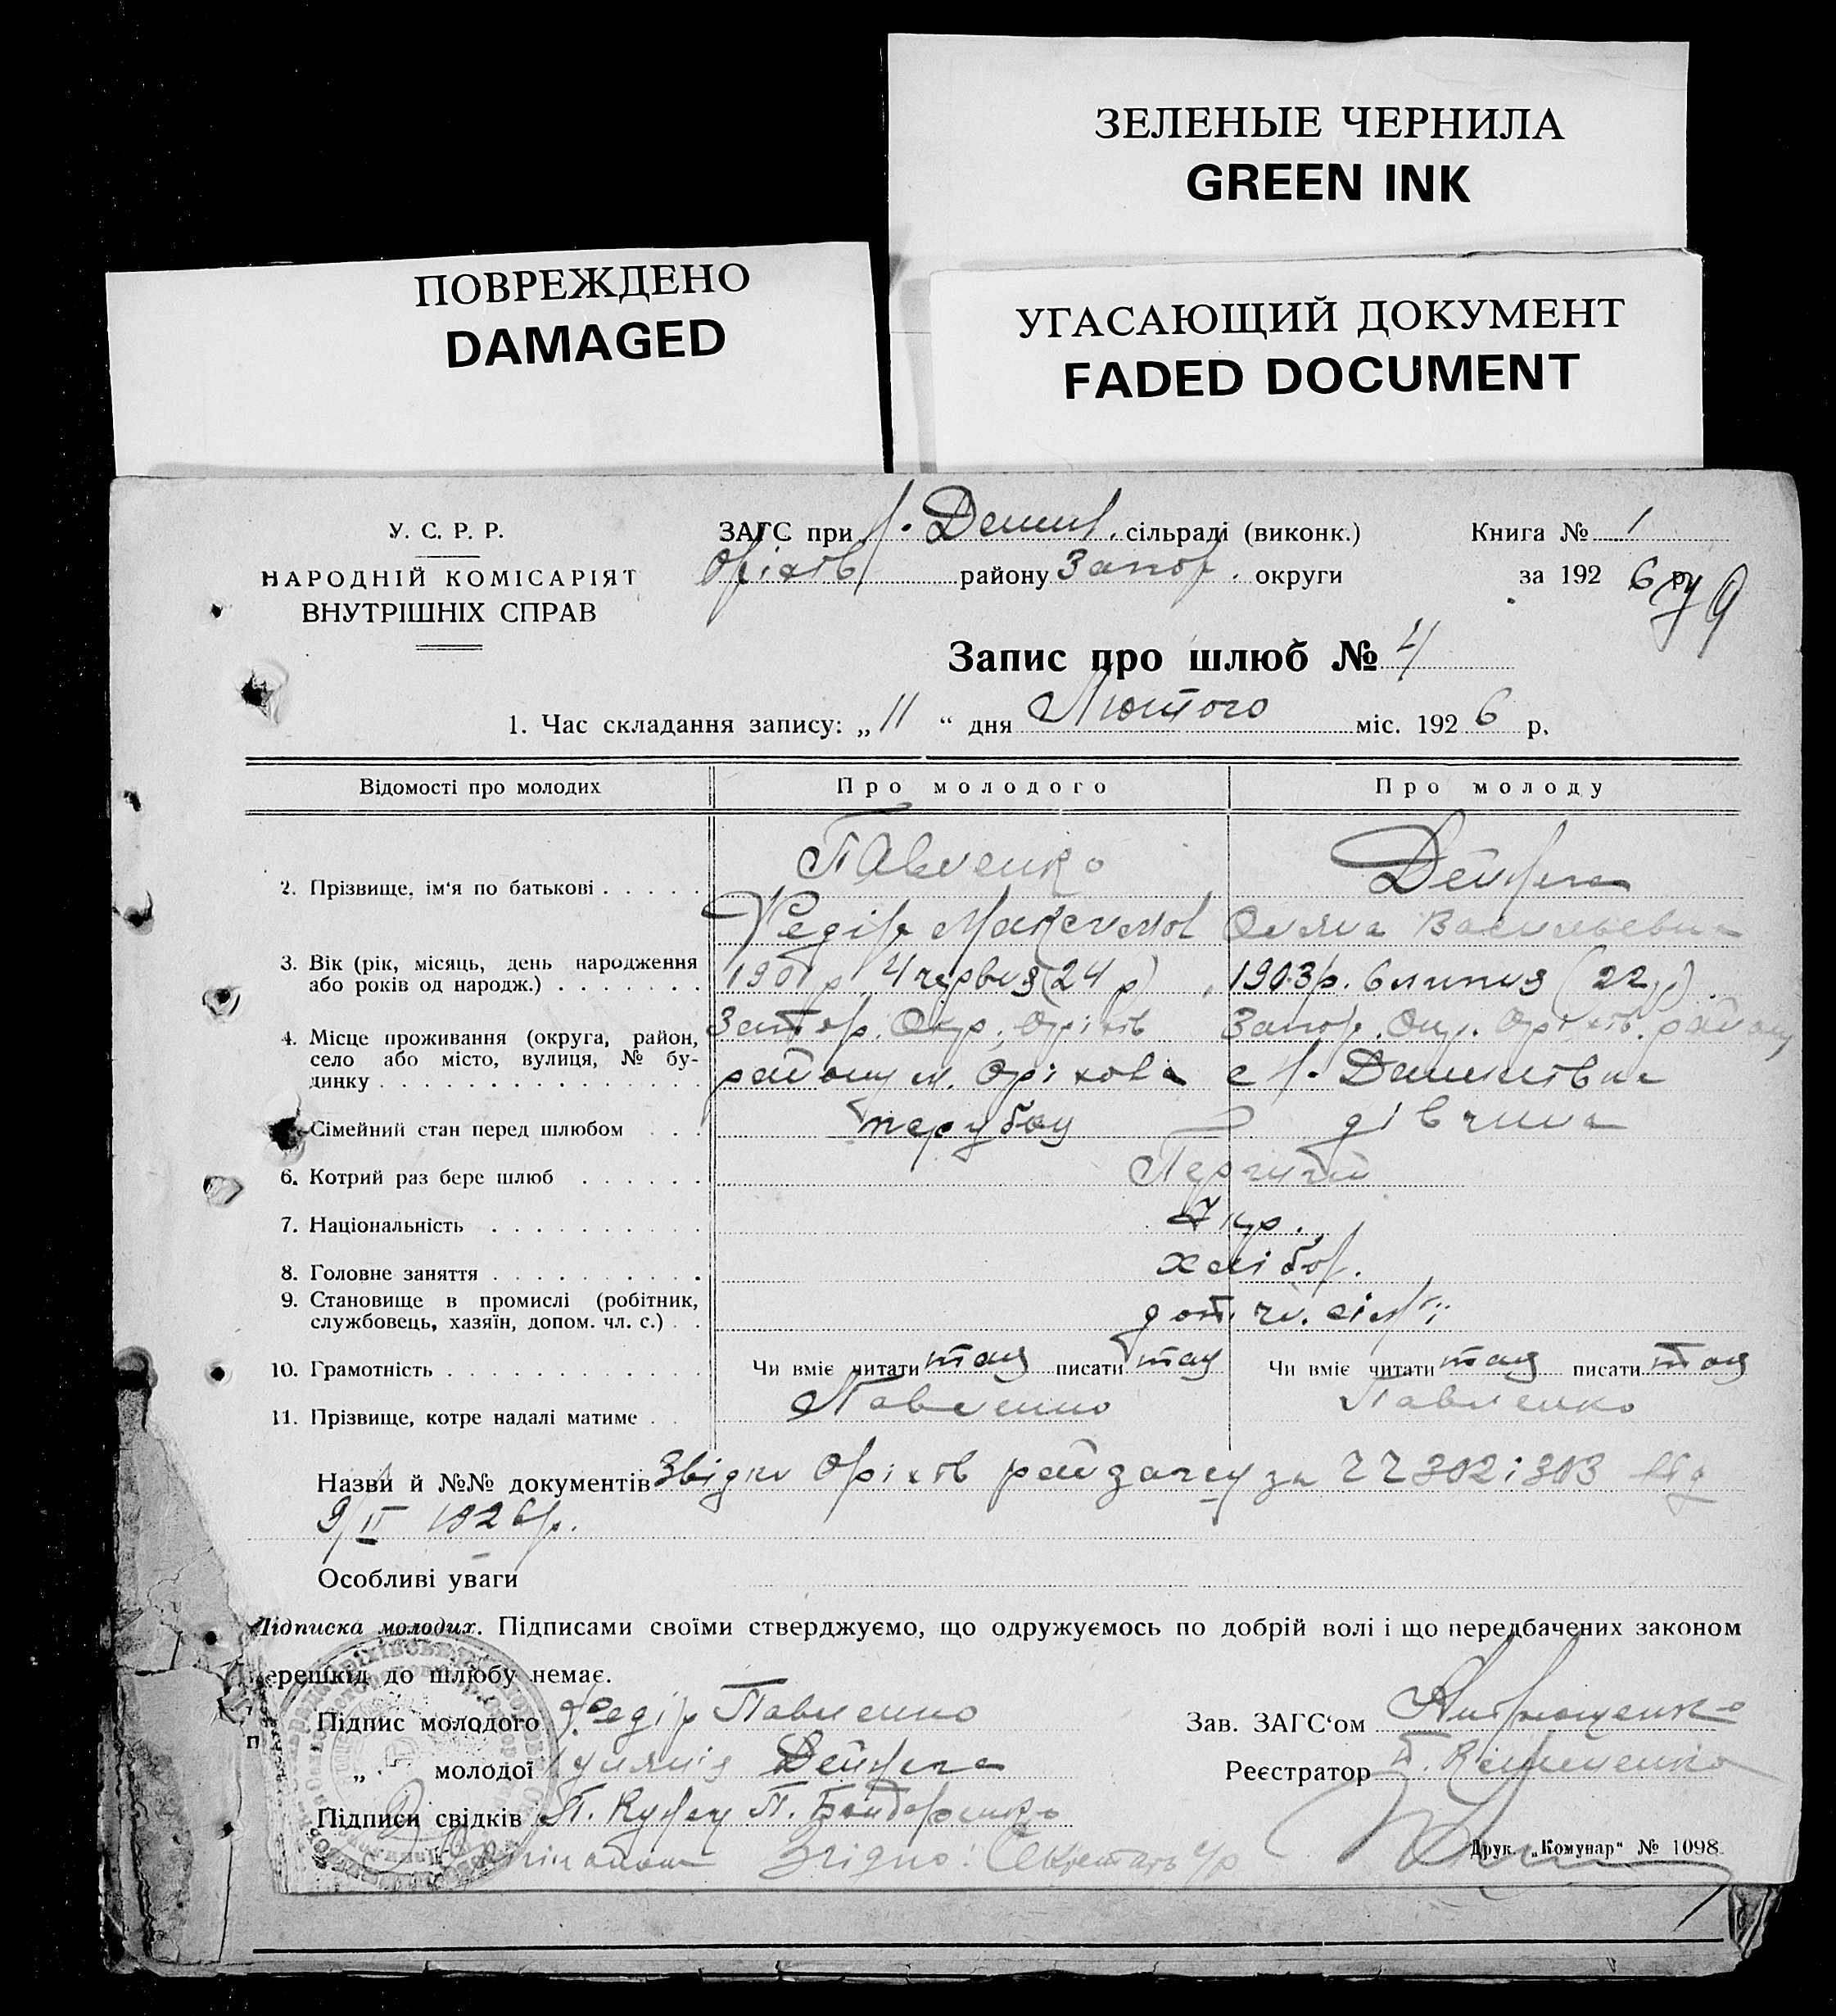 ЗЕЛЕНЫЕ ЧЕРНИЛА
GREEN INK
ПОВРЕЖДЕНО
DAMAGED
УГАСАЮЩИЙ ДОКУМЕНТ
FADED DOCUMENT
У. С. Р. Р.
НАРОДНІЙ КОМІСАРІЯТ
ВНУТРІШНІХ СПРАВ
ЗАГС при сільраді (виконк.)
Оріхів району Запор. округи
Книга № 1
за 192 6 р.
79
Запис про шлюб № 4
1. Час складання запису: „ 11 “ дня Лютого міс. 192 6 р.
Відомості про молодих Про молодого Про молоду
2. Прізвище, ім'я по батькові Павленко Дейнега
Федір Максимов Васильевна
3. Вік (рік, місяць, день народження або років од народж.) 1901 р. 4 червня (24 р) 1903 р. 6 липня (22 р).
4. Місце проживання (округа, район, село або місто, вулиця, № будинку Запор. Окр. Оріхів Запор. Окр. Оріхів. району
району м. Оріхова с
Сімейний стан перед шлюбом парубок дівчина
6. Котрий раз бере шлюб Перший
7. Національність Укр.
8. Головне заняття хлібор.
9. Становище в промислі (робітник, службовець, хазяїн, допом. чл. с.) доп. чл. сім'ї
10. Грамотність Чи вміє читати так писати так Чи вміє читати так писати так
11. Прізвище, котре надалі матиме Павленко Павленко
Назви й №№ документів Звідки Оріхів райзагсу за 302 і 303 від
9/II 1926 р.
Особливі уваги
Підписка молодих. Підписами своїми стверджуємо, що одружуємось по добрій волі і що передбачених законом
перешкід до шлюбу немає.
Підпис молодого Федір Павленко
„ молодої Дейнега
Підписи свідків П. П. Бондаренко
Зав. ЗАГС'ом
Реєстратор
З оригіналом Згідно: Секретарь с/р
Друк. „Комунар“ № 1098.